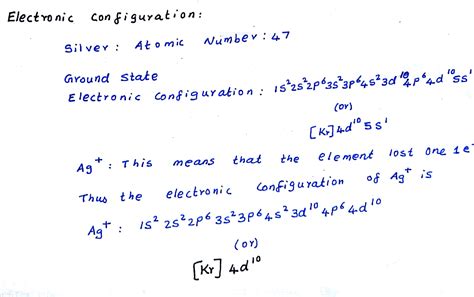 Electronic Configuration:
Silver: Atomic Number: 47
Ground state
Electronic Configuration: 1s²2s²2p⁶3s²3p⁶4s²3d¹⁰4p⁶4d¹⁰5s¹
(or)
[Kr]4d¹⁰5s¹
Ag⁺: This means that the element lost one 1e⁻
Thus the electronic configuration of Ag⁺ is
Ag⁺: 1s² 2s² 2p⁶ 3s² 3p⁶ 4s² 3d¹⁰ 4p⁶ 4d¹⁰
(or)
[Kr] 4d¹⁰